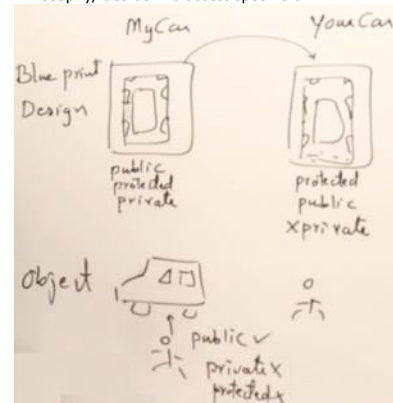 MyCar
YourCar
Blue print
Design
public
protected
private
protected
public
X private
Object
public ✓
private x
protected x